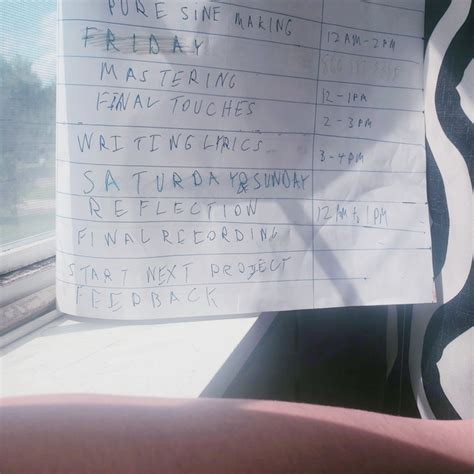 PURE SINE MAKING
FRIDAY 12AM-2AM
MASTERING
FINAL TOUCHES 12-1PM
2-3PM
WRITING LYRICS 3-4PM
SATURDAY & SUNDAY
REFLECTION 12AM to 1PM
FINAL RECORDING
START NEXT PROJECT
FEEDBACK